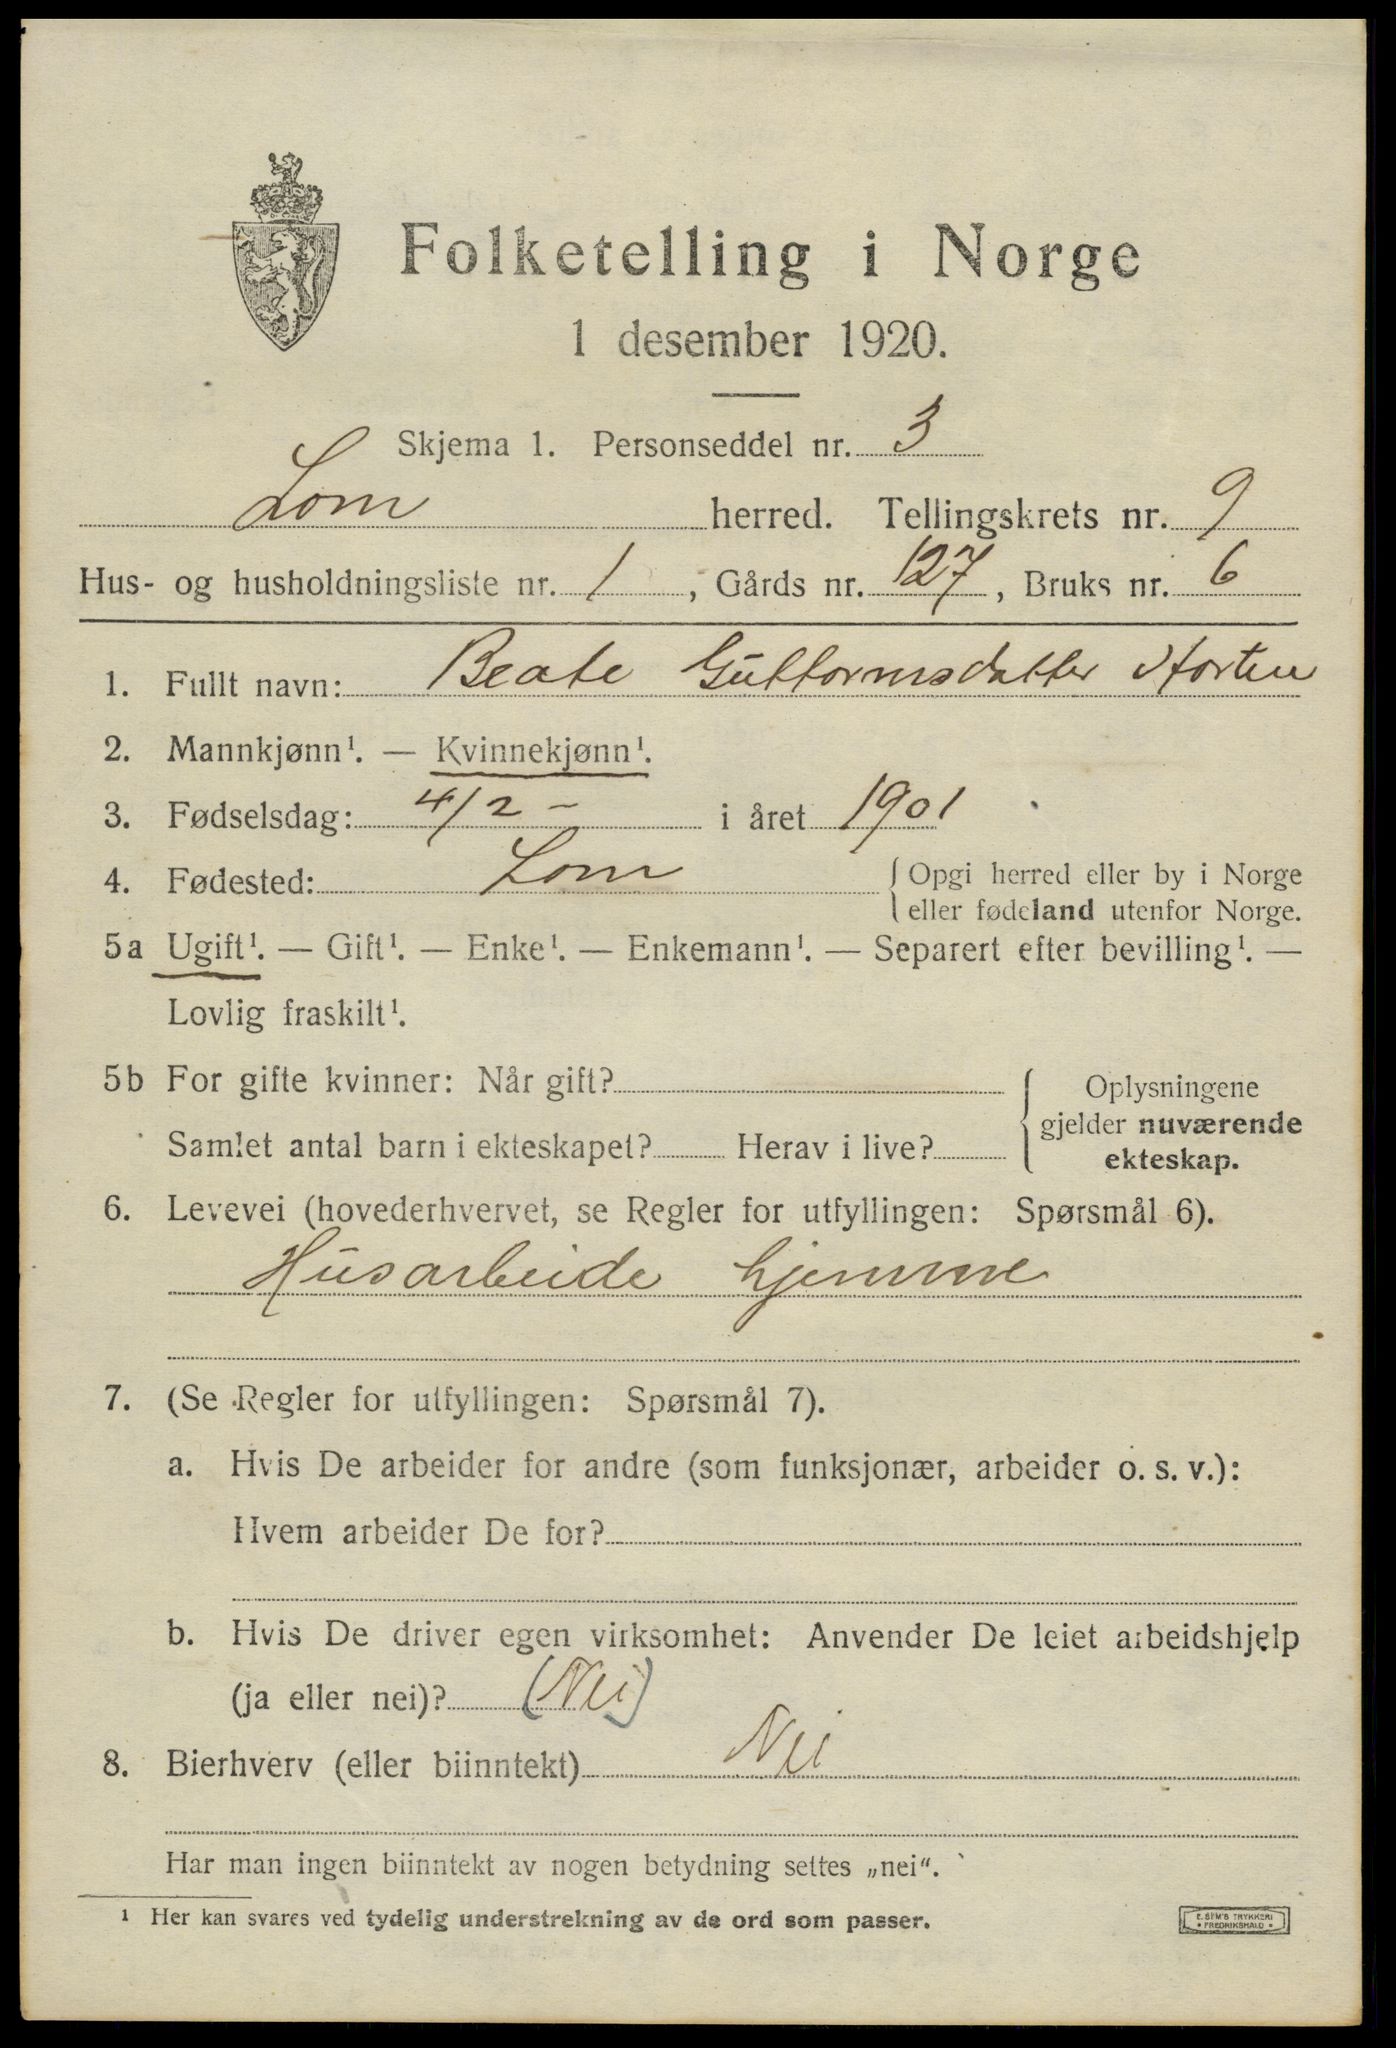 Folketelling i Norge
1 desember 1920.
Skjema 1. Personseddel nr. 3
Lom herred. Tellingskrets nr. 9
Hus- og husholdningsliste nr. 1, Gårds nr. 127, Bruks nr. 6
1. Fullt navn: Beate Guttormsdatter
2. Mannkjønn¹. — Kvinnekjønn¹.
3. Fødselsdag: 4/2 - i året 1901
4. Fødested: Lom { Opgi herred eller by i Norge
eller fødeland utenfor Norge.
5a Ugift¹. — Gift¹. — Enke¹. — Enkemann¹. — Separert efter bevilling¹. —
Lovlig fraskilt¹.
5b For gifte kvinner: Når gift? { Oplysningene
gjelder nuværende
Samlet antal barn i ekteskapet? Herav i live? ekteskap.
6. Levevei (hovederhvervet, se Regler for utfyllingen: Spørsmål 6).
Husarbeide hjemme
7. (Se Regler for utfyllingen: Spørsmål 7).
a. Hvis De arbeider for andre (som funksjonær, arbeider o. s. v.):
Hvem arbeider De for?
b. Hvis De driver egen virksomhet: Anvender De leiet arbeidshjelp
(ja eller nei)? (Nei)
8. Bierhverv (eller biinntekt) Nei
Har man ingen biinntekt av nogen betydning settes „nei“.
¹ Her kan svares ved tydelig understrekning av de ord som passer.
E. SEM'S TRYKKERI
• FREDRIKSHALD •